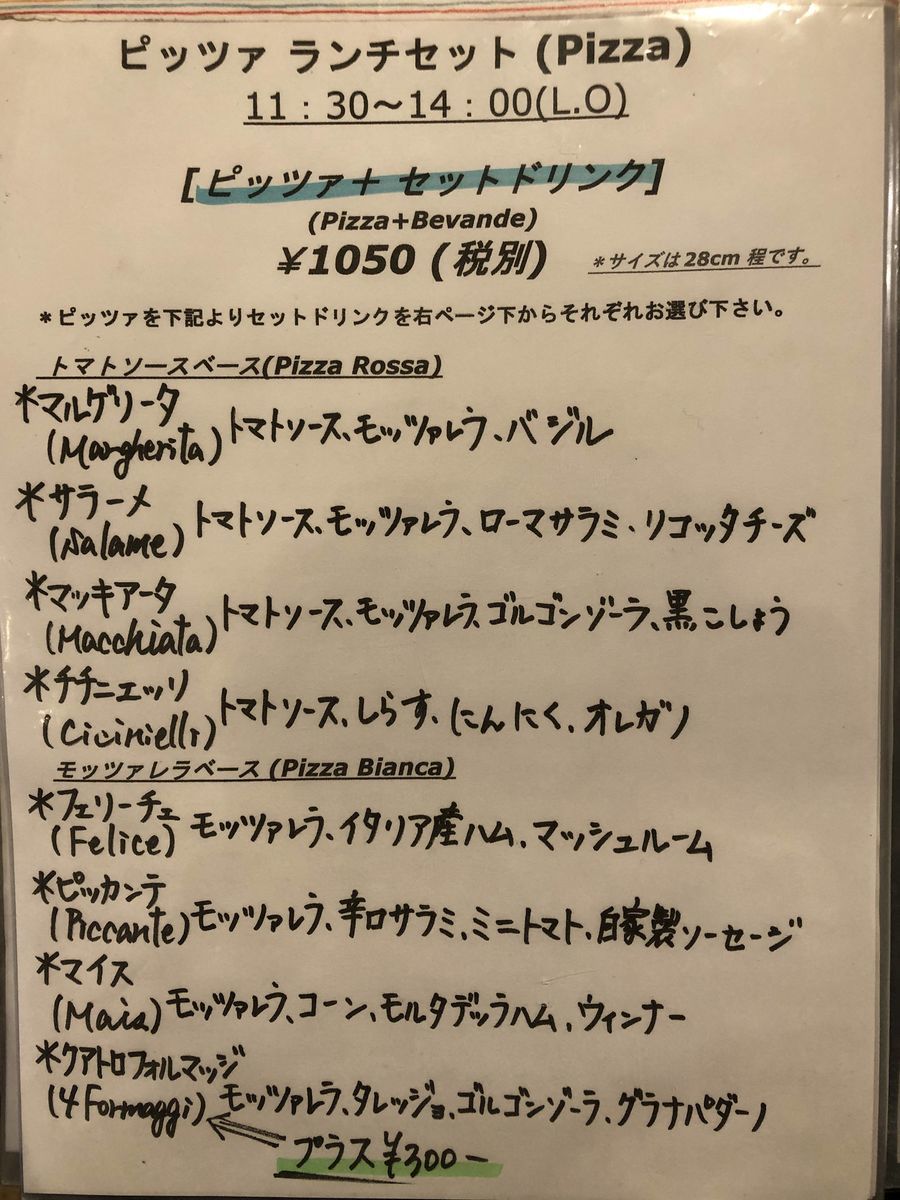 ピッツァ ランチセット (Pizza)
11：30～14：00(L.O)
[ピッツァ＋ セットドリンク]
(Pizza+Bevande)
¥1050 (税別)
＊サイズは28cm 程です。
＊ピッツァを下記よりセットドリンクを右ページ下からそれぞれお選び下さい。
トマトソースベース(Pizza Rossa)
＊マルゲリータ
(Margherita) トマトソース、モッツァレラ、バジル
＊サラーメ
(Salame) トマトソース、モッツァレラ、ローマサラミ・リコッタチーズ
＊マッキアータ
(Macchiata) トマトソース、モッツァレラ、ゴルゴンゾーラ、黒こしょう
＊チチニエッリ
(Cicinielli) トマトソース、しらす、にんにく、オレガノ
モッツァレラベース (Pizza Bianca)
＊フェリーチェ
(Felice) モッツァレラ、イタリア産ハム、マッシュルーム
＊ピッカンテ
(Piccante) モッツァレラ、辛口サラミ、ミニトマト、自家製ソーセージ
＊マイス
(Mais) モッツァレラ、コーン、モルタデッラハム、ウィンナー
＊クアトロフォルマッジ
(4 Formaggi) モッツァレラ、タレッジョ、ゴルゴンゾーラ、グラナパダーノ
プラス¥300-